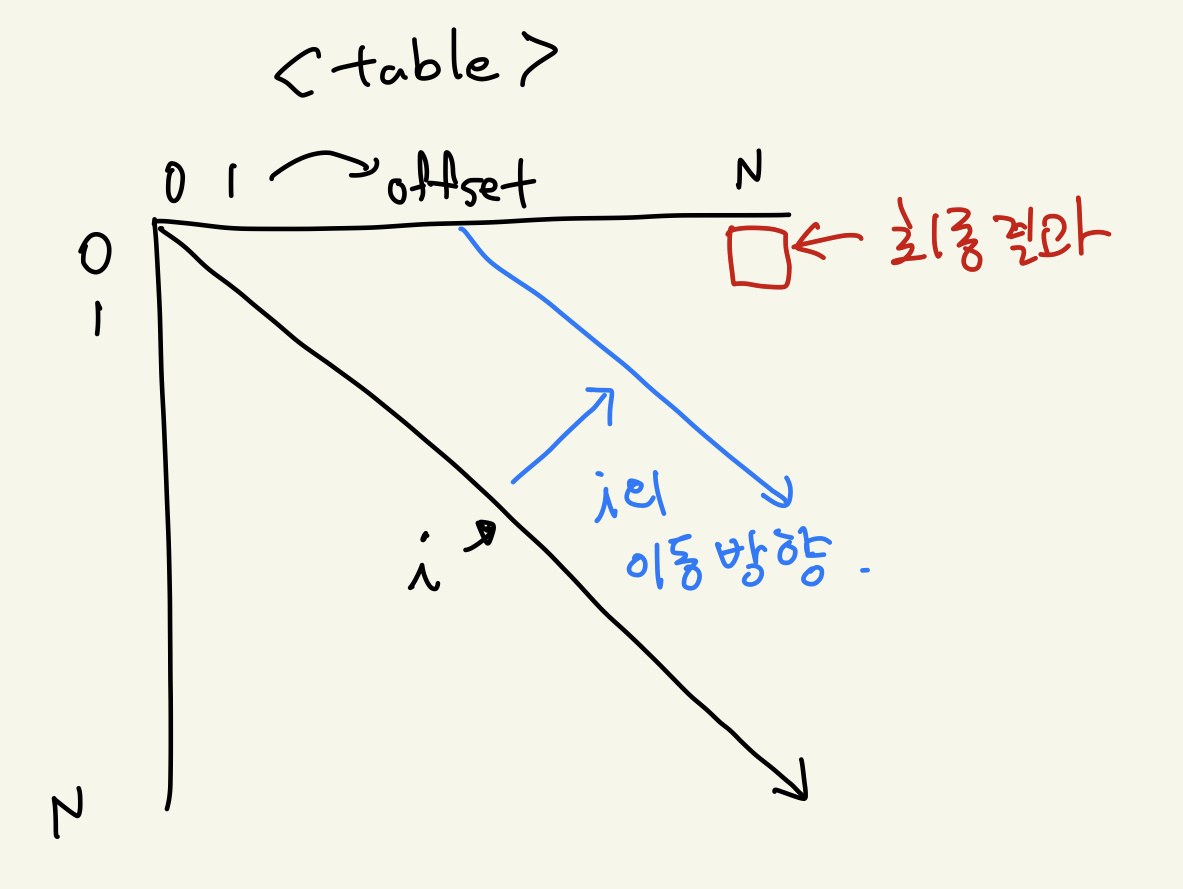 <table>
0 1 offset N
0
1
최종결과
i의
이동방향.
i
N